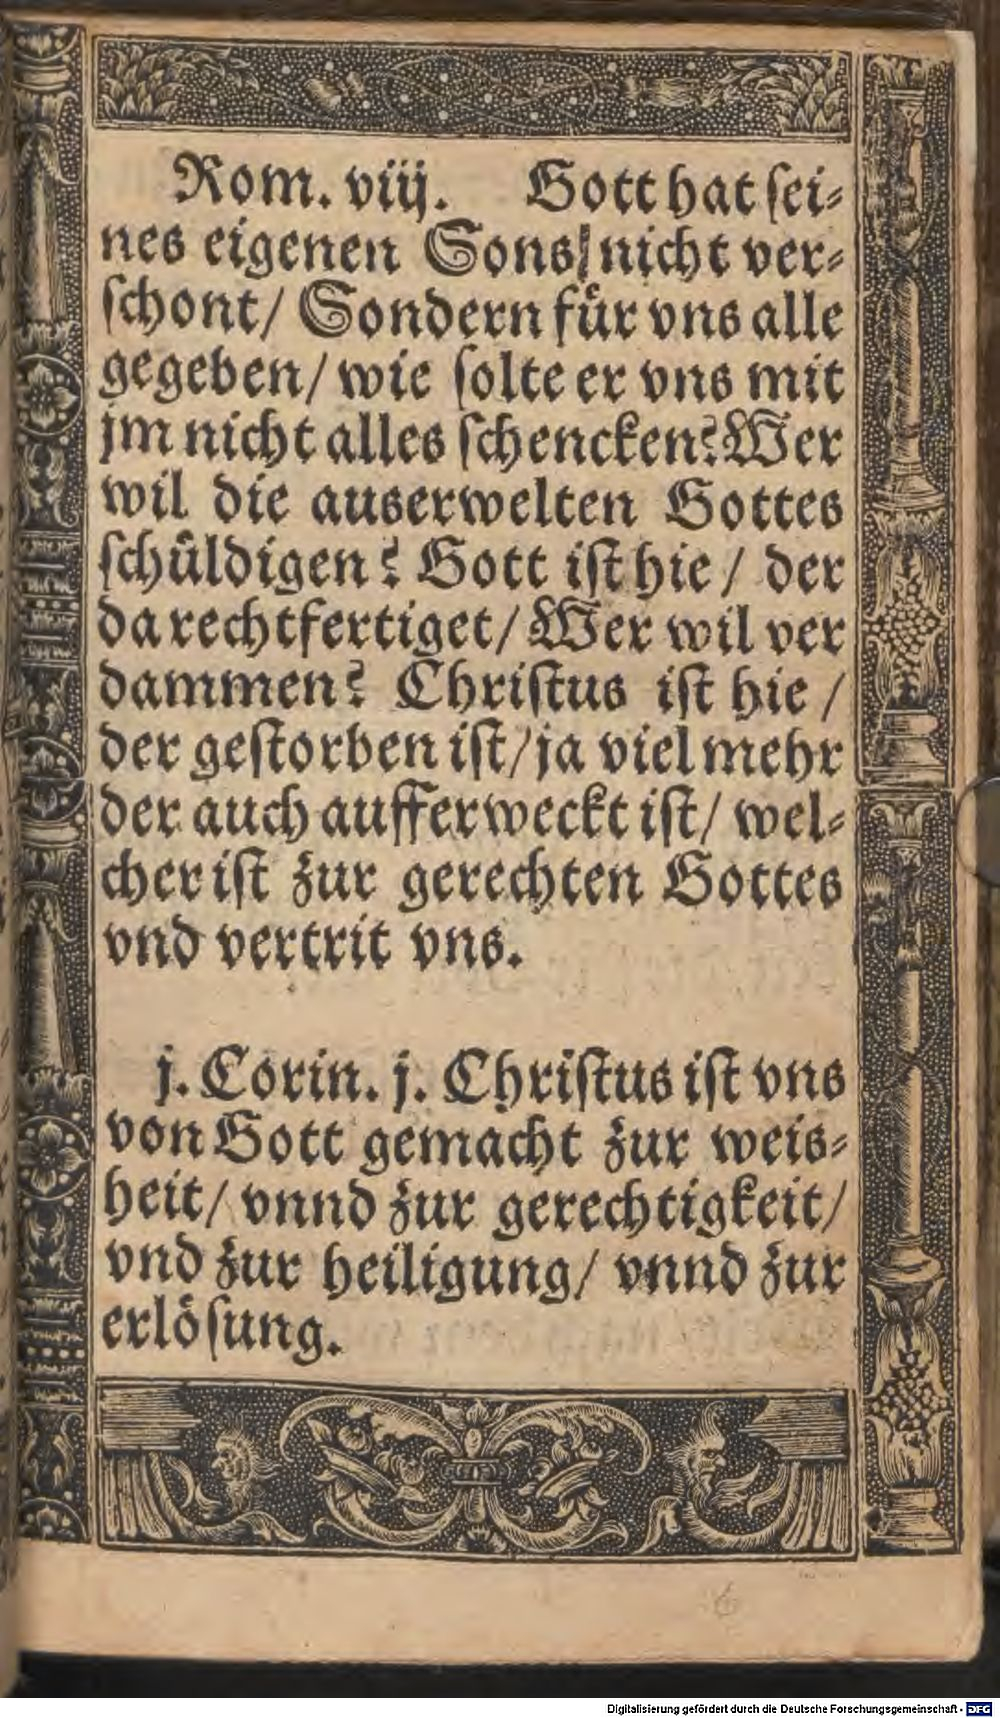 Rom. viij. Gott hat ſei⸗
nes eigenen Sons/nicht ver⸗
ſchont/ Sondern fuͤr vns alle
gegeben/ wie ſolte er vns mit
jm nicht alles ſchencken? Wer
wil die auserwelten Gottes
ſchuͤldigen? Gott iſt hie / der
da rechtfertiget/ Wer wil ver
dammen? Chriſtus iſt hie /
der geſtorben iſt/ ja viel mehr
der auch aufferweckt iſt/ wel⸗
cher iſt zur gerechten Gottes
vnd vertrit vns.
j. Corin. j. Chriſtus iſt vns
von Gott gemacht zur weis⸗
heit/ vnnd zur gerechtigkeit/
vnd zur heiligung/ vnnd zur
erloͤſung.
6
Digitalisierung gefördert durch die Deutsche Forschungsgemeinschaft - DFG